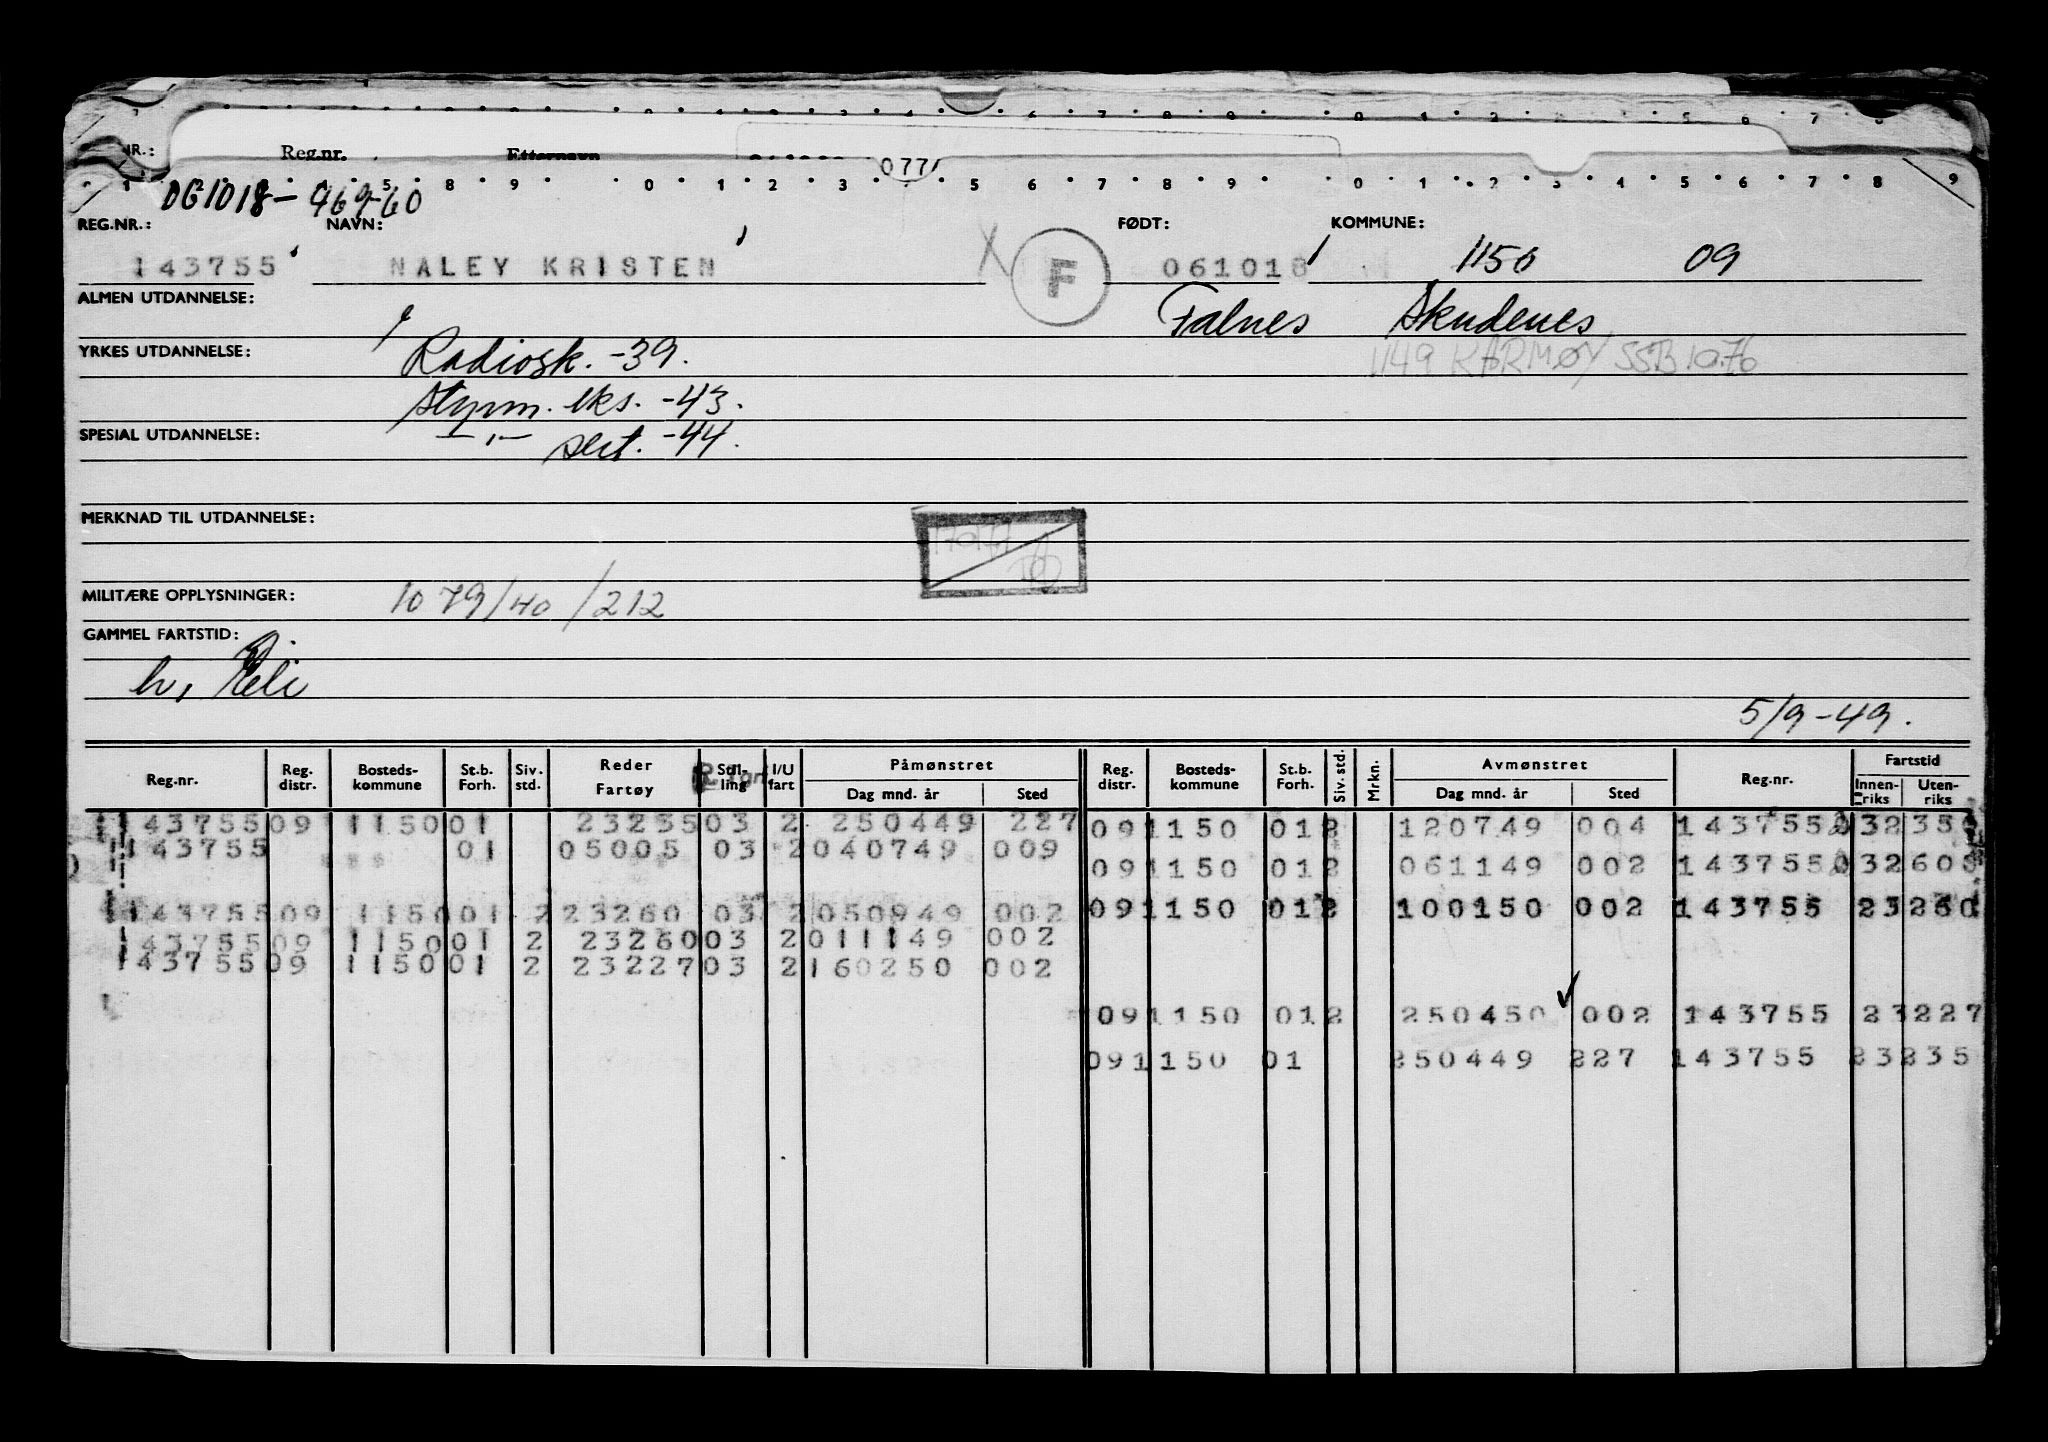 NR.: Reg.nr. Etternavn 077
1 5 8 9 0 1 2 3 5 6 7 8 9 0 1 2 3 4 5 6 7 8 9
061018-969-60
REG.NR.: NAVN: FØDT: KOMMUNE:
143755 NALEY KRISTEN X F 061018 1150 09
ALMEN UTDANNELSE: Falnes Skudenes
YRKES UTDANNELSE: Radiosk. -39. 1149 KARMØY SSB 10.76
styrm. eks. -43.
SPESIAL UTDANNELSE: —„— sert. -44.
MERKNAD TIL UTDANNELSE:
MILITÆRE OPPLYSNINGER: 10 79/40/212
GAMMEL FARTSTID:
h, Eli
5/9-49.
Reg.nr. Reg. distr. Bosteds-kommune St.b. Forh. Siv. std. Reder Fartøy Stil-ling I/U fart Påmønstret Dag mnd. år Sted Reg. distr. Bosteds-kommune St.b. Forh. Siv. std. Mrkn. Avmønstret Dag mnd. år Sted Reg.nr. Fartstid Innen-riks Uten-riks
143755 09 1150 01 23235 03 2 250449 227 09 1150 01 2 120749 004 143755
143755 01 05005 03 2 040749 009
09 1150 01 2 061149 002 143755
143755 09 1150 01 2 23260 03 2 050949 002 09 1150 01 2 100150 002 143755 23260
143755 09 1150 01 2 23260 03 2 011149 002
143755 09 1150 01 2 23227 03 2 160250 002
09 1150 01 2 250450 002 143755 23227
09 1150 01 250449 227 143755 23235